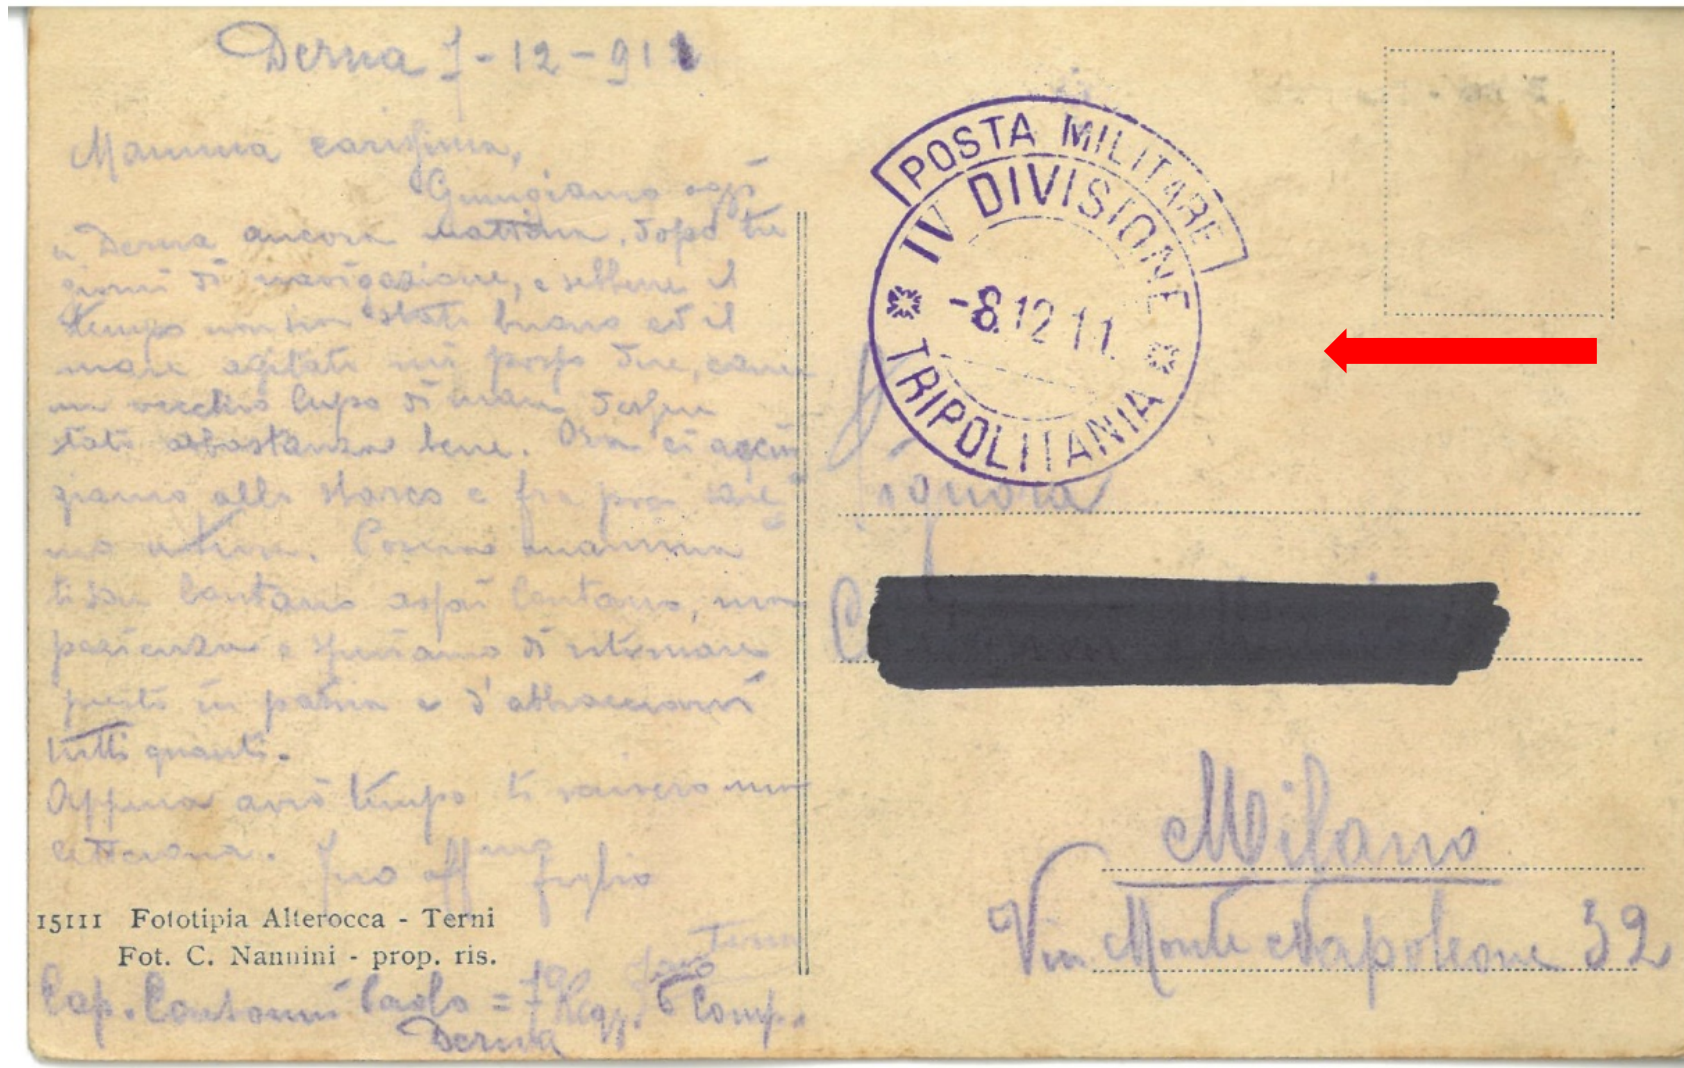 Derna 7-12-911
Mamma carissima,
Giungiamo oggi
a Derna ancora mattina, dopo tre
giorni di navigazione, e sebbene il
tempo non sia stato buono ed il
mare agitato mi posso dire, come
un vecchio lupo di mare
abbastanza bene. Ora ci accin
giamo allo sbarco e fra poco sare
mo Povera mammina
lontano assai lontano, ma
pazienza e speriamo di ritornare
presto in patria e d'abbracciarvi
tutti quanti.
Appena avrò tempo ti scriverò una
letterona.
tuo aff mo figlio
15111 Fototipia Alterocca - Terni
Fot. C. Nannini - prop. ris.
Cap. Paolo = 7° Regg. Fanteria
6 Comp.
Derna
POSTA MILITARE
IV DIVISIONE
-8.12.11.
TRIPOLITANIA
Signora
Milano
Via Monte Napoleone 32